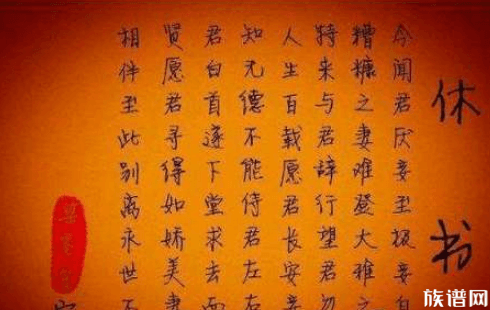 休书
今闻君厌妾至极妾自
糟糠之妻难登大雅之
特来与君辞行望君勿
人生百载愿君长安妾
知无德不能侍君左右
君白首遂下堂求去而
贤愿君寻得如娇美妻
相伴至此别离永世不
族谱网